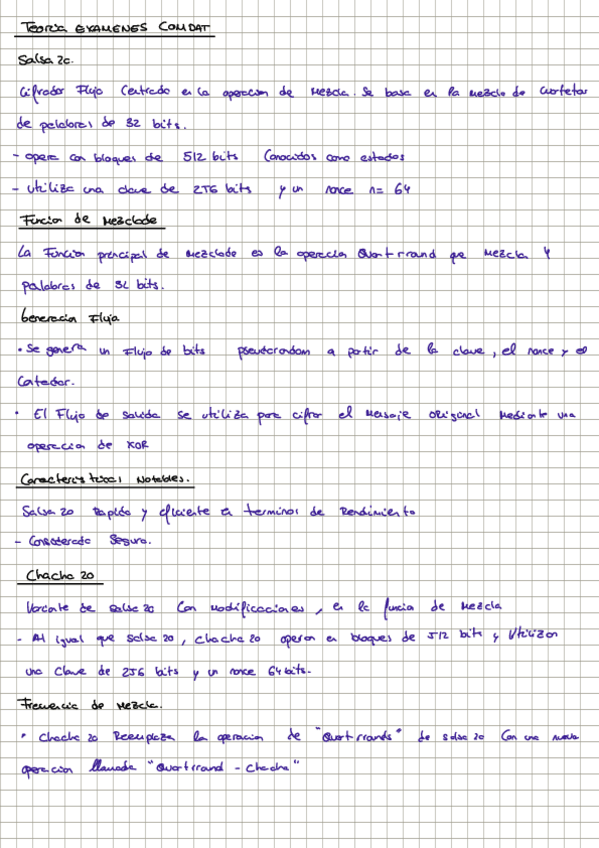 TEORIA EXAMENES COMDAT
Salsa 20.
Cifrador Flujo Centrado en la operacion de mezcla. Se basa en la mezcla de cuartetos
de palabras de 32 bits.
- opera con bloques de 512 bits Conocidos como estados
- utiliza una clave de 256 bits y un nonce n= 64
Funcion de Mezclade
La Funcion principal de mezclade es la operacion Quartrrand que mezcla 4
palabras de 32 bits.
Generacion Flujo
• Se genera un Flujo de bits pseudorandom a partir de la clave, el nonce y el
Contador.
• El Flujo de salida se utiliza para cifrar el mensaje original mediante una
operacion de XOR
Caracteristicas Notables.
Salsa 20 Rapido y eficiente en terminos de Rendimiento
- Considerado Seguro.
Chacha 20
Variante de salsa 20 Con modificaciones, en la funcion de mezcla
- Al igual que salsa 20, chacha 20 operan en bloques de 512 bits y Utilizan
una clave de 256 bits y un nonce 64 bits.
Frecuencia de mezcla.
• Chacha 20 Reemplaza la operacion de "Quartrrands" de salsa 20 Con una nueva
operacion llamada "Quartrrand - Chacha"